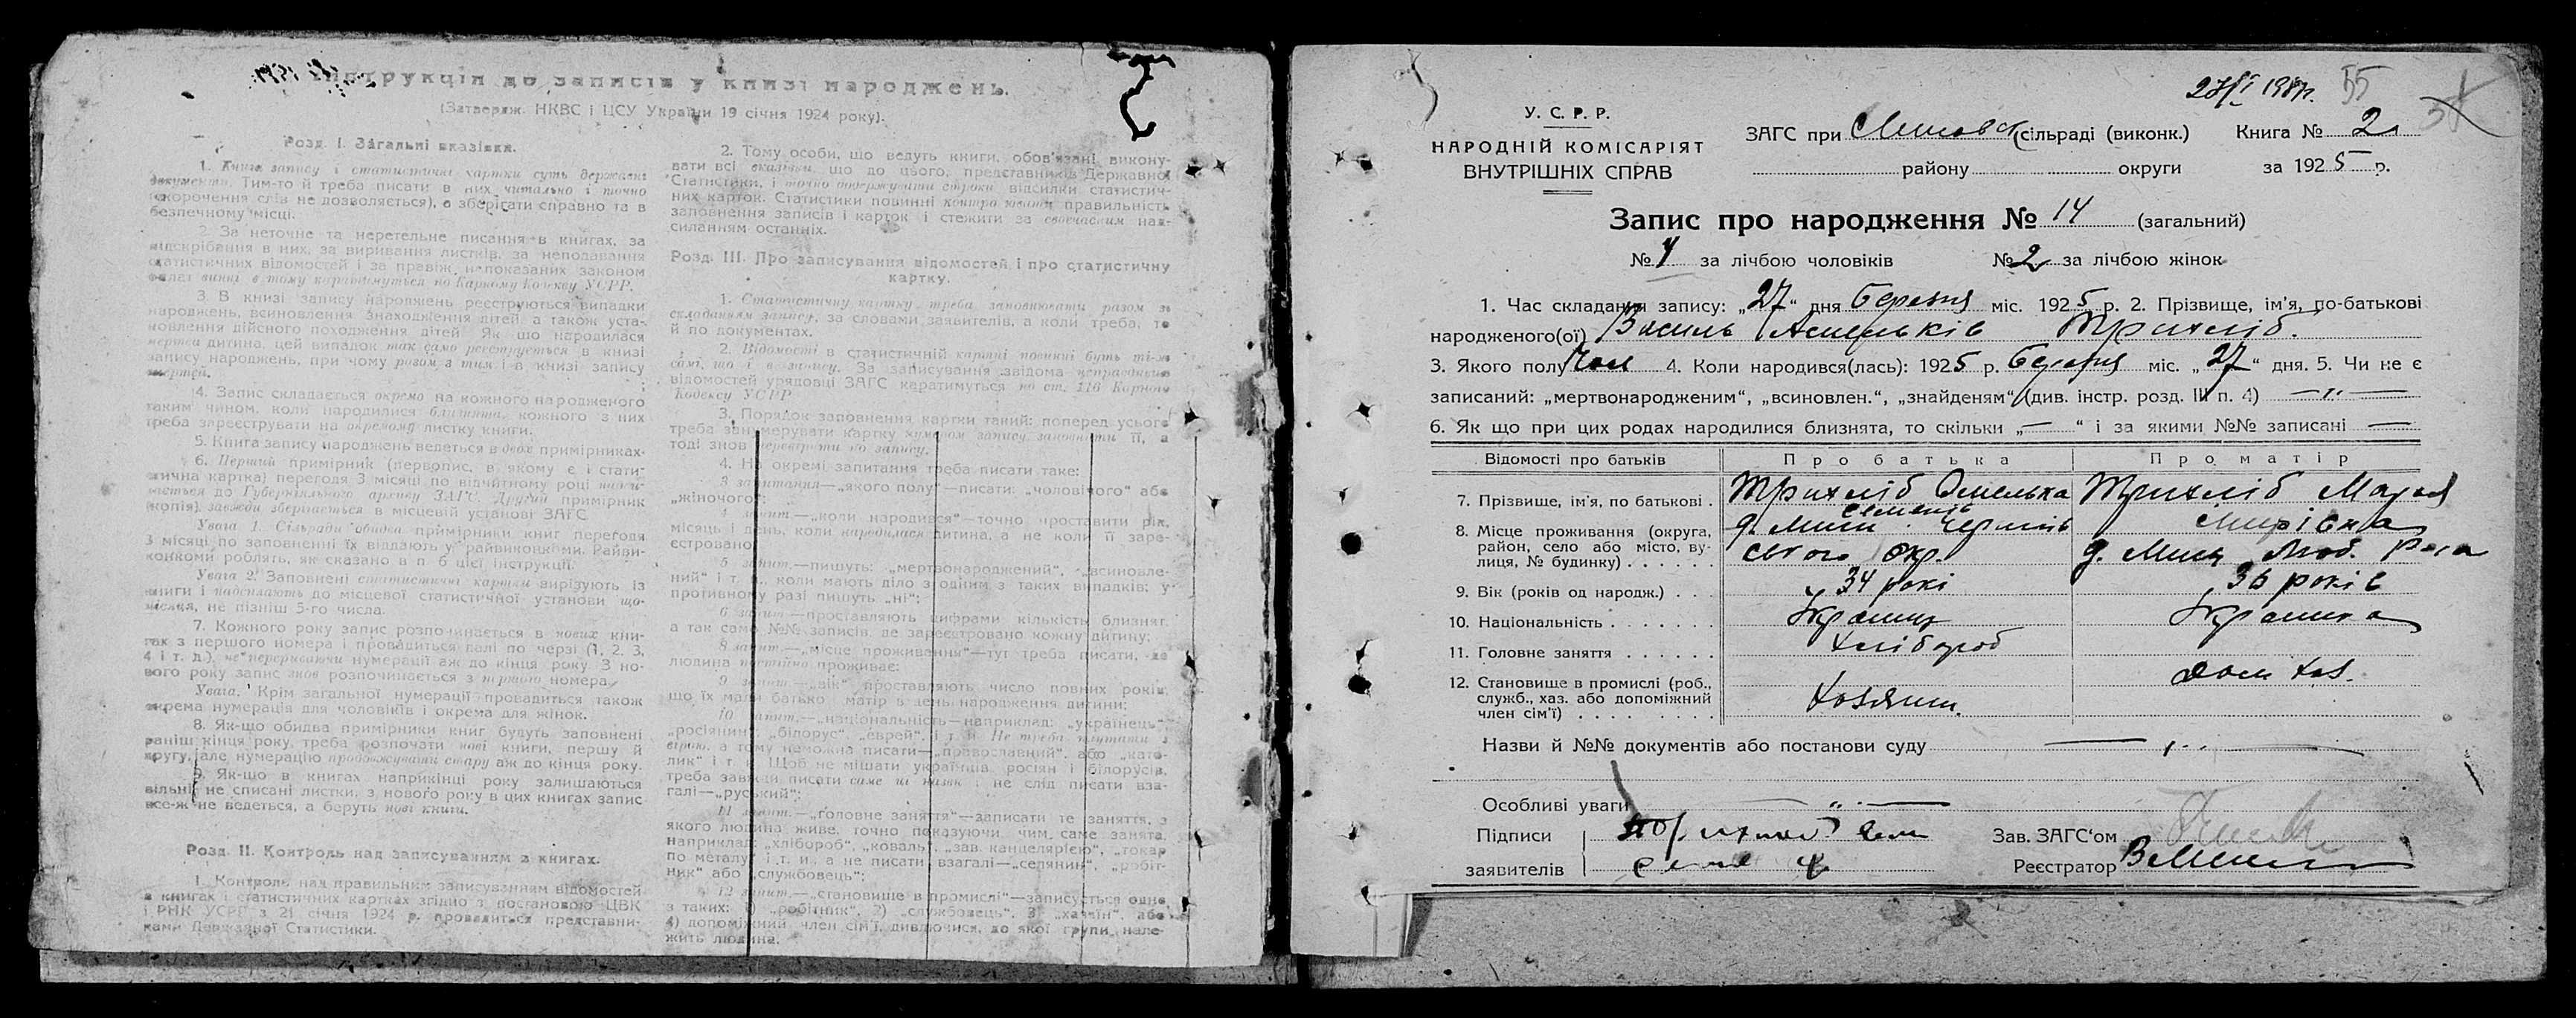 Інструкція до записів у книзі народжень.
(Затверж. НКВС і ЦСУ України 19 січня 1924 року).
Розд. І. Загальні вказівки.
1. Книга запису і статистичні картки суть державні
документи. Тим-то й треба писати в них читально і точно
(скорочення слів не дозволяється), а зберігати справно та в
безпечному місці.
2. За неточне та неретельне писання в книгах, за
підскрібання в них, за виривання листків, за неподавання
статистичних відомостей і за правіж, непоказаних законом
винні в тому каратимуться по Карному Кодексу УСРР.
3. В книзі запису народжень реєструються випадки
народжень, всиновлення знаходження дітей, а також уста-
новлення дійсного походження дітей. Як що народилася
мертва дитина, цей випадок так само реєструється в книзі
запису народжень, при чому разом з тим і в книзі запису
смертей.
4. Запис складається окремо на кожного народженого
таким чином, коли народилися близнята, кожного з них
треба зареєструвати на окремому листку книги.
5. Книга запису народжень ведеться в двох примірниках.
6. Перший примірник (первопис, в якому є і стати-
стична картка) перегодя 3 місяці по відчитному році
до Губерніяльного архіву ЗАГС. Другий примірник
(копія) завжди зберігається в місцевій установі ЗАГС.
Увага 1. Сільради обидва примірники книг перегодя
3 місяці по заповненні їх віддають у райвиконкоми. Райви-
конкоми роблять, як сказано в п. 6 цієї інструкції.
Увага 2. Заповнені статистичні картки вирізують із
книги і надсилають до місцевої статистичної установи що-
місяця, не пізніш 5-го числа.
7. Кожного року запис розпочинається в нових кни-
гах з першого номера і провадиться далі по черзі (1, 2, 3,
4 і т. д.), не перериваючи нумерації аж до кінця року. З но-
вого року запис знов розпочинається з першого номера.
Увага. Крім загальної нумерації провадиться також
окрема нумерація для чоловіків і окрема для жінок.
8. Як-що обидва примірники книг будуть заповнені
раніш кінця року, треба розпочати нові книги, першу й
другу, але нумерацію продовжувати стару аж до кінця року.
9. Як-що в книгах наприкінці року залишаються
вільні не списані листки, з нового року в цих книгах запис
все-ж не ведеться, а беруть нові книги.
Розд. II. Контроль над записуванням в книгах.
1. Контроль над правильним записуванням відомостей
в книгах і статистичних картках згідно з постановою ЦВК
і РНК УСРР з 21 січня 1924 р. провадиться представни-
ками Державної Статистики.
2. Тому особи, що ведуть книги, обов'язані викону-
вати всі вказівки, що до цього, представників Державної
Статистики, і точно додержувати строки відсилки статистич-
них карток. Статистики повинні контролювати правильність
заповнення записів і карток і стежити за своєчасним над-
силанням останніх.
Розд. III. Про записування відомостей і про статистичну
картку.
1. Статистичну картку треба заповнювати разом з
складанням запису, за словами заявителів, а коли треба, то
й по документах.
2. Відомості в статистичній картці повинні буть ті-ж
самі, що і в запису. За записування звідома неправдивих
відомостей урядовці ЗАГС каратимуться по ст. 116 Карного
Кодексу УСРР
3. Порядок заповнення картки такий: поперед усього
треба занумерувати картку нумером запису, заповнити її, а
тоді знов перевірити по запису.
4. На окремі запитання треба писати таке:
3 запитання—„якого полу“—писати: „чоловічого“ або
„жіночого“;
4 запит.—„коли народився“—точно проставити рік,
місяць і день, коли народилася дитина, а не коли її заре-
єстровано;
5 запит.—пишуть: „мертвонароджений“, „всиновле-
ний“ і т. д., коли мають діло з одним з таких випадків; у
противному разі пишуть „ні“;
6 запит.—проставляють цифрами кількість близнят,
а так само №№ записів, де зареєстровано кожну дитину;
8 запит.—„місце проживання“—тут треба писати, де
людина постійно проживає;
9 запит.—„вік“ проставляють число повних років,
що їх мали батько матір в день народження дитини;
10 запит.—„національність—наприклад: „українець“,
„росіянин“, „білорус“, „єврей“, і т. и. Не треба плутати з
вірою, а тому неможна писати—„православний“, або „като-
лик“ і т. и. Щоб не мішати українців, росіян і білорусів,
треба завжди писати саме ці назви і не слід писати вза-
галі—„руський“;
11 запит.—„головне заняття“—записати те заняття, з
якого людина живе, точно показуючи, чим саме занята,
наприклад: „хлібороб“, „коваль“, „зав. канцелярією“, „токар
по металу“ і т. и., а не писати взагалі—„селянин“, „робіт-
ник“ або „службовець“;
12 запит.—„становище в промислі“—записується одне
з таких: 1) „робітник“, 2) „службовець“, 3) „хазяїн“, або
4) допоміжний член сім'ї, дивлючися, до якої групи нале-
жить людина.
55
У. С. Р. Р.
НАРОДНІЙ КОМІСАРІЯТ
ВНУТРІШНІХ СПРАВ
ЗАГС при сільраді (виконк.) Книга № 2
району округи за 1925 р.
Запис про народження № 14 (загальний)
№ за лічбою чоловіків № 2 за лічбою жінок
1. Час складання запису: „27“ дня березня міс. 1925 р. 2. Прізвище, ім'я, по-батькові
народженого(ої) Василь Трихліб.
3. Якого полу Чол 4. Коли народився(лась): 1925 р. березня міс. „27“ дня. 5. Чи не є
записаний: „мертвонародженим“, „всиновлен.“, „знайденям“ (див. інстр. розд. III п. 4) —„—
6. Як що при цих родах народилися близнята, то скільки „—“ і за якими №№ записані —
Відомості про батьків Про батька Про матір
7. Прізвище, ім'я, по батькові . Трихліб Омелька Семенів Трихліб Мария
8. Місце проживання (округа, район, село або місто, ву- лиця, № будинку) . . . . . . ського окр.
9. Вік (років од народж.) . . . 34 рокі 36 років
10. Національність . . . . . . . Українц Украинка
11. Головне заняття . . . . . . хлібороб
12. Становище в промислі (роб., служб., хаз. або допоміжний член сім'ї) . . . . . . . . . Хозяин. дом. хоз.
Назви й №№ документів або постанови суду
Особливі уваги —„—
Підписи
заявителів
Зав. ЗАГС'ом
Реєстратор